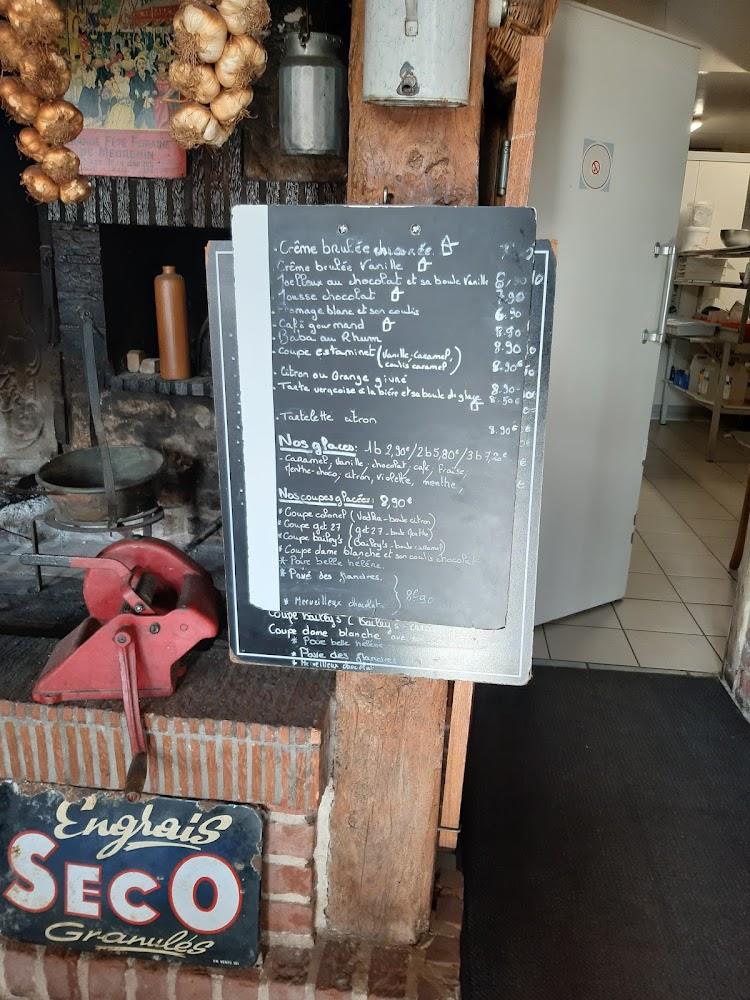 GRANDE FÊTE FORAINE
DE MEGREMIN
Crème brulée chicorée
Crème brulée Vanille
Moelleux au chocolat et sa boule Vanille
Mousse chocolat 7.90
Fromage blanc et son coulis 6.90
Café gourmand 8.90
Baba au Rhum 8.90
Coupe estaminet (Vanille, Caramel, coulis caramel) 8.90€
Citron ou Orange givré 8.90
Tarte vergeoise à la bière et sa boule de glace 8.50€
Tartelette citron 8.90€
Nos glaces: 1b 2,90€/2b 5,80€/3b 7,20€
- Caramel, Vanille, chocolat, café, fraise,
Menthe-choco, citron, violette, menthe,
Nos coupes glacées: 8,90€
* Coupe colonel (Vodka - boule citron)
* Coupe get 27 (get 27 - boule Menthe)
* Coupe bailey's (Bailey's - boule caramel)
* Coupe dame blanche et son coulis chocolat
* Poire belle hélène.
* Pavé des flandres. } 8€90
* Merveilleux chocolat
Coupe Bailey's (Bailey's - cara
Coupe dame blanche ave
* Poire belle hélène
* Pavé des flandres
* Merveilleux chocolat
Engrais
SECO
Granulés